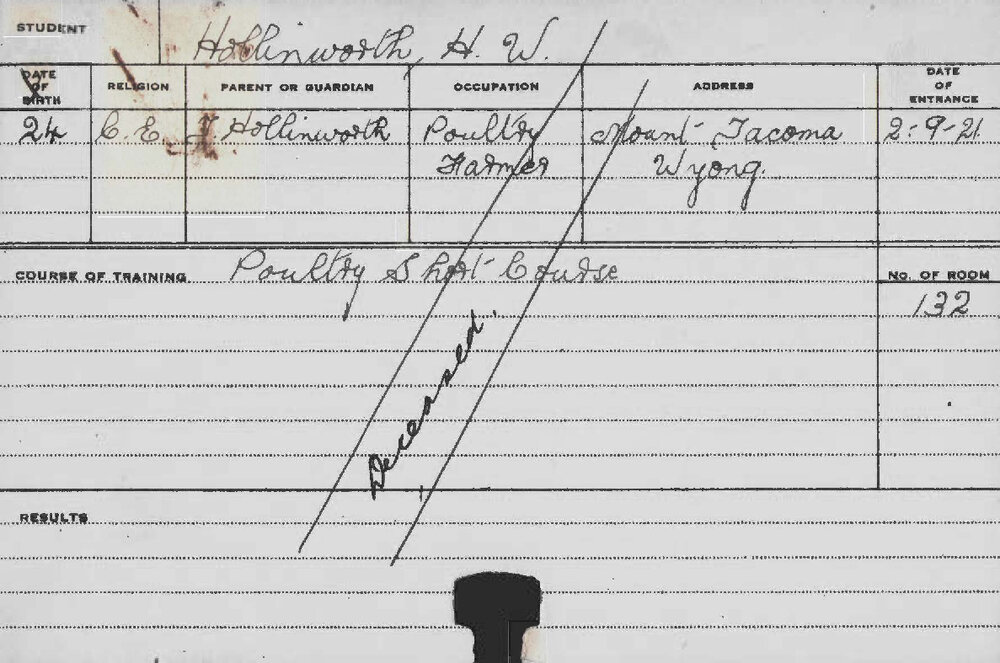 STUDENT Hollinworth, H. W.
DATE OF BIRTH RELIGION PARENT OR GUARDIAN OCCUPATION ADDRESS DATE OF ENTRANCE
24 C. E. Hollinworth Poultry Mount Tacoma 2-9-21
Farmer Wyong.
COURSE OF TRAINING Poultry Short Course No. OF ROOM
132
Deceased.
RESULTS